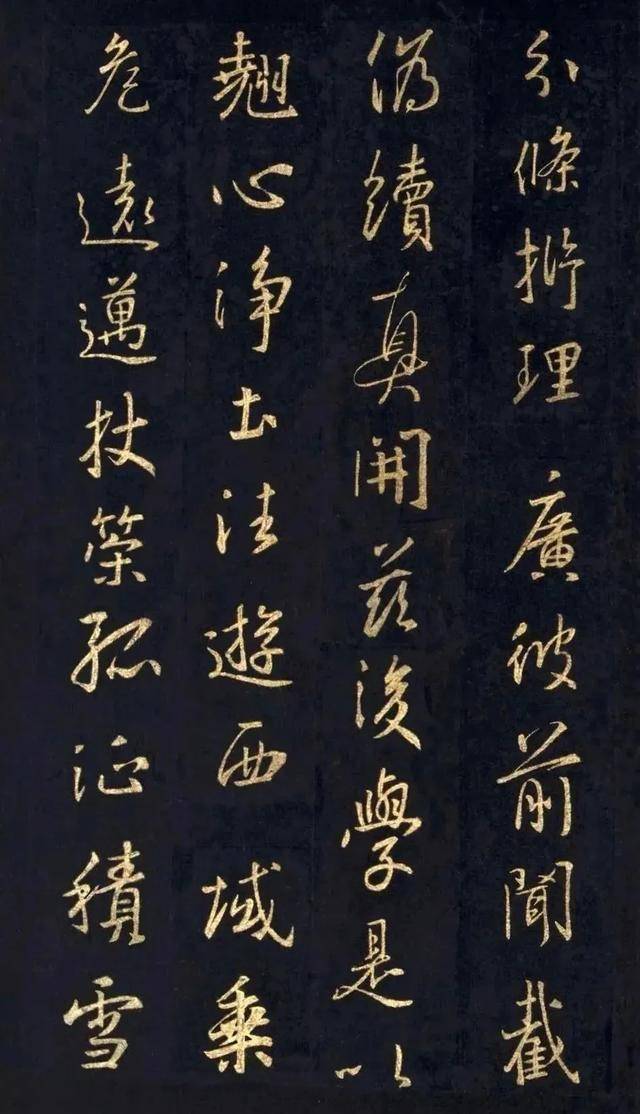 分條析理廣彼前聞截
偽續真開茲後學是以
翹心淨土法遊西域乘
危遠邁杖策孤征積雪